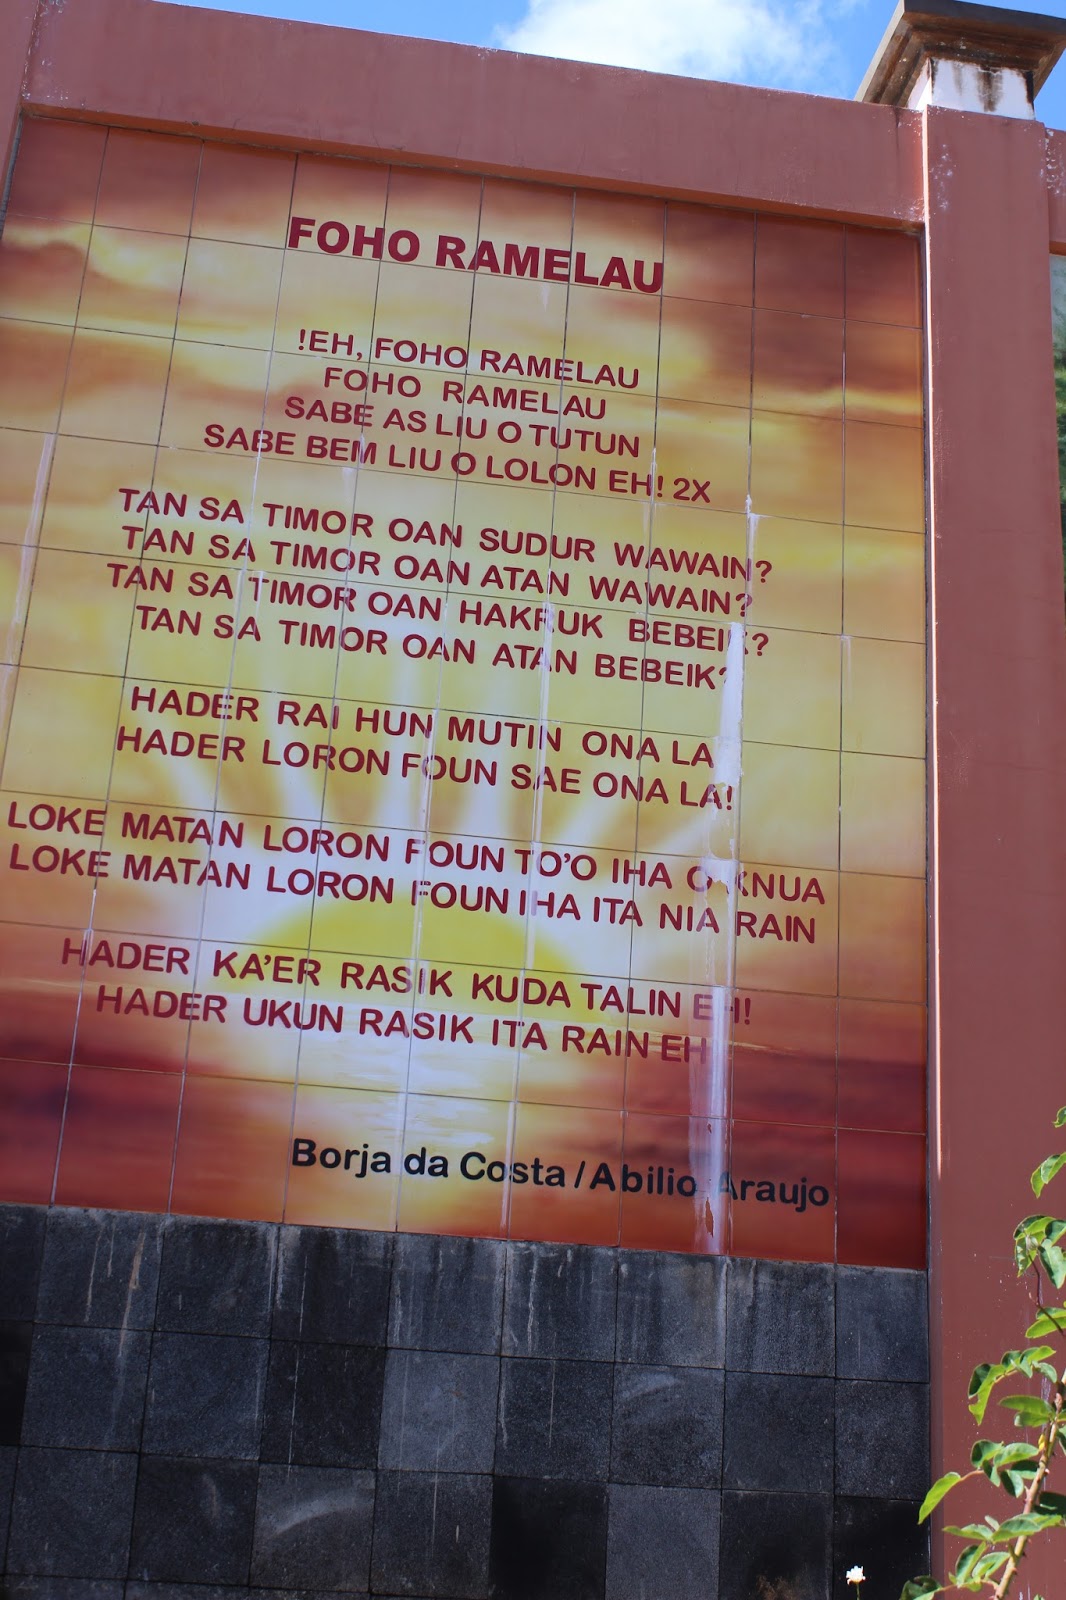 FOHO RAMELAU
!EH, FOHO RAMELAU
FOHO RAMELAU
SABE AS LIU O TUTUN
SABE BEM LIU O LOLON EH! 2X
TAN SA TIMOR OAN SUDUR WAWAIN?
TAN SA TIMOR OAN ATAN WAWAIN?
TAN SA TIMOR OAN HAKRUK BEBEIK?
TAN SA TIMOR OAN ATAN BEBEIK?
HADER RAI HUN MUTIN ONA LA
HADER LORON FOUN SAE ONA LA!
LOKE MATAN LORON FOUN TO'O IHA O KNUA
LOKE MATAN LORON FOUN IHA ITA NIA RAIN
HADER KA'ER RASIK KUDA TALIN EH!
HADER UKUN RASIK ITA RAIN EH
Borja da Costa / Abilio Araujo